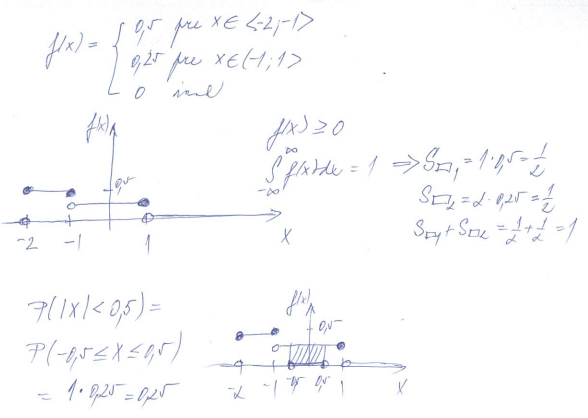 f(x) = { 0,5 pre x ∈ <-2;-1>
0,25 pre x ∈ (-1;1>
0 inak
f(x)
0,5
-2 -1 1 x
f(x) ≥ 0
∫_{-∞}^{∞} f(x)dx = 1 ⇒ S▭₁ = 1·0,5 = 1/2
S▭₂ = 2·0,25 = 1/2
S▭₁ + S▭₂ = 1/2 + 1/2 = 1
P(|X| < 0,5) =
P(-0,5 ≤ X ≤ 0,5)
= 1·0,25 = 0,25
f(x)
0,5
-2 -1 -0,5 0,5 1 x